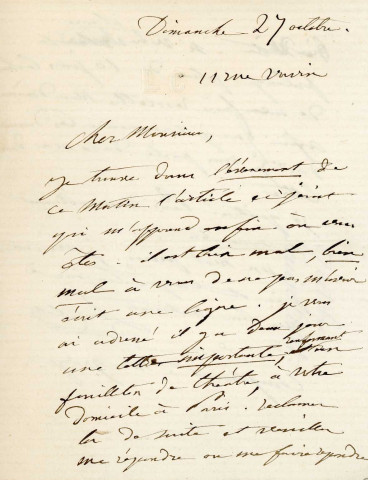 Dimanche 27 octobre.
11 rue Vavin
Cher Monsieur,
je trouve dans l'évènement de
ce matin l'article ci joint
qui m'apprend enfin où vous
êtes. il est bien mal, bien
mal à vous de ne pas m'avoir
écrit une ligne. je vous
ai adressé il y a deux jours
une lettre importante, renfermant un
feuilleton de théâtre à votre
domicile à Paris. réclamez
la de suite et veuillez
me répondre ou me faire répondre